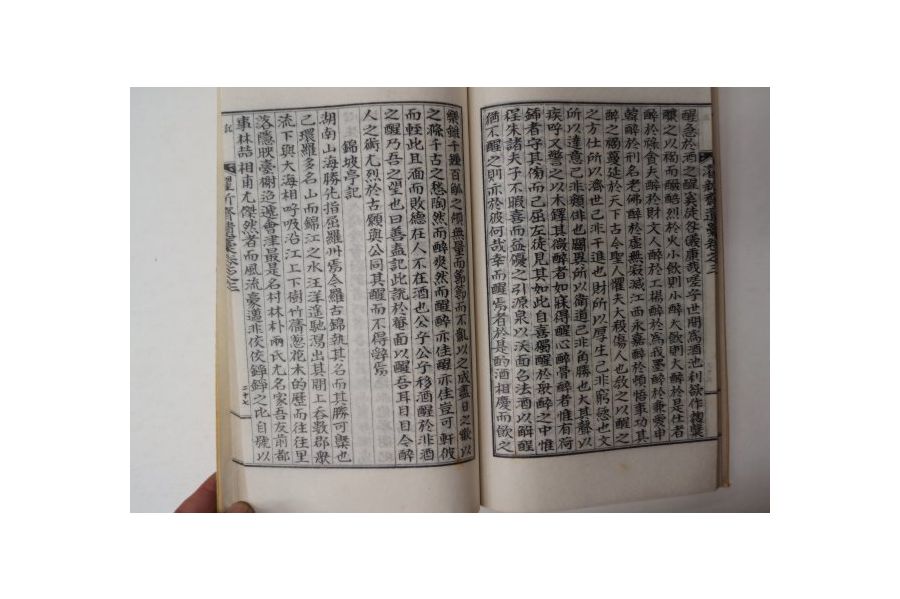 醒急於酒之醒奚徒名儀康哉嗟乎世間爲池利欲作麴糵
釀之以禍而釅醅烈於火小飮則小醉大飮則大醉於是仕者
醉於祿貪夫醉於財文人醉於工揚醉於爲我墨醉於兼愛申
韓醉於刑名老佛醉於虛無寂滅江西永嘉醉於頓悟事功其
醉之禍蔓延於天下古今聖人懼夫大殺傷人也敎之以醒之
之方仕所以濟世己非干進也財所以厚生己非窮慾也文
所以達意己非類俳也闢異所以衛道己非角勝也大其聲以
疾呼又警之以木鐸其微醉者如寐得醒心醉骨醉者惟有荷
鍤者守其傍而已屈左徒見其如此自喜獨醒於衆醉之中惟
程朱諸夫子不暇喜而益憂之引源泉以沃面名法酒以解酲
猶不醒之則亦於彼何哉幸而醒焉者於是酌酒相慶而飮之
樂雖千鍾百觚之傾無量而節節而不亂以之成盡日之歡以
之滌千古之愁陶然而醉爽然而醒醉亦佳醒亦佳豈可軒彼
而輊此且面而敗德在人不在酒也公乎公乎移酒醒於非酒
之醒乃吾之望也曰善盍記此說於菴面以醒吾耳目令醉
人之術尤烈於古願與公同其醒而不得辭焉
錦坡亭記
湖南山海勝牝指屈羅州焉今羅古錦執其名而其勝可槩也
已環羅多名山而錦江之水汪洋進馳瀉出其間上呑數郡衆
流下與大海相呼吸沿江上下樹竹蓊葱花木的歷而往往里
落隱映臺榭迢遞會津最是名村林朴兩氏尤名家吾友前都
事林喆相甫尤傑然者而風流豪邁非佼佼錚錚之比自號以
二十七